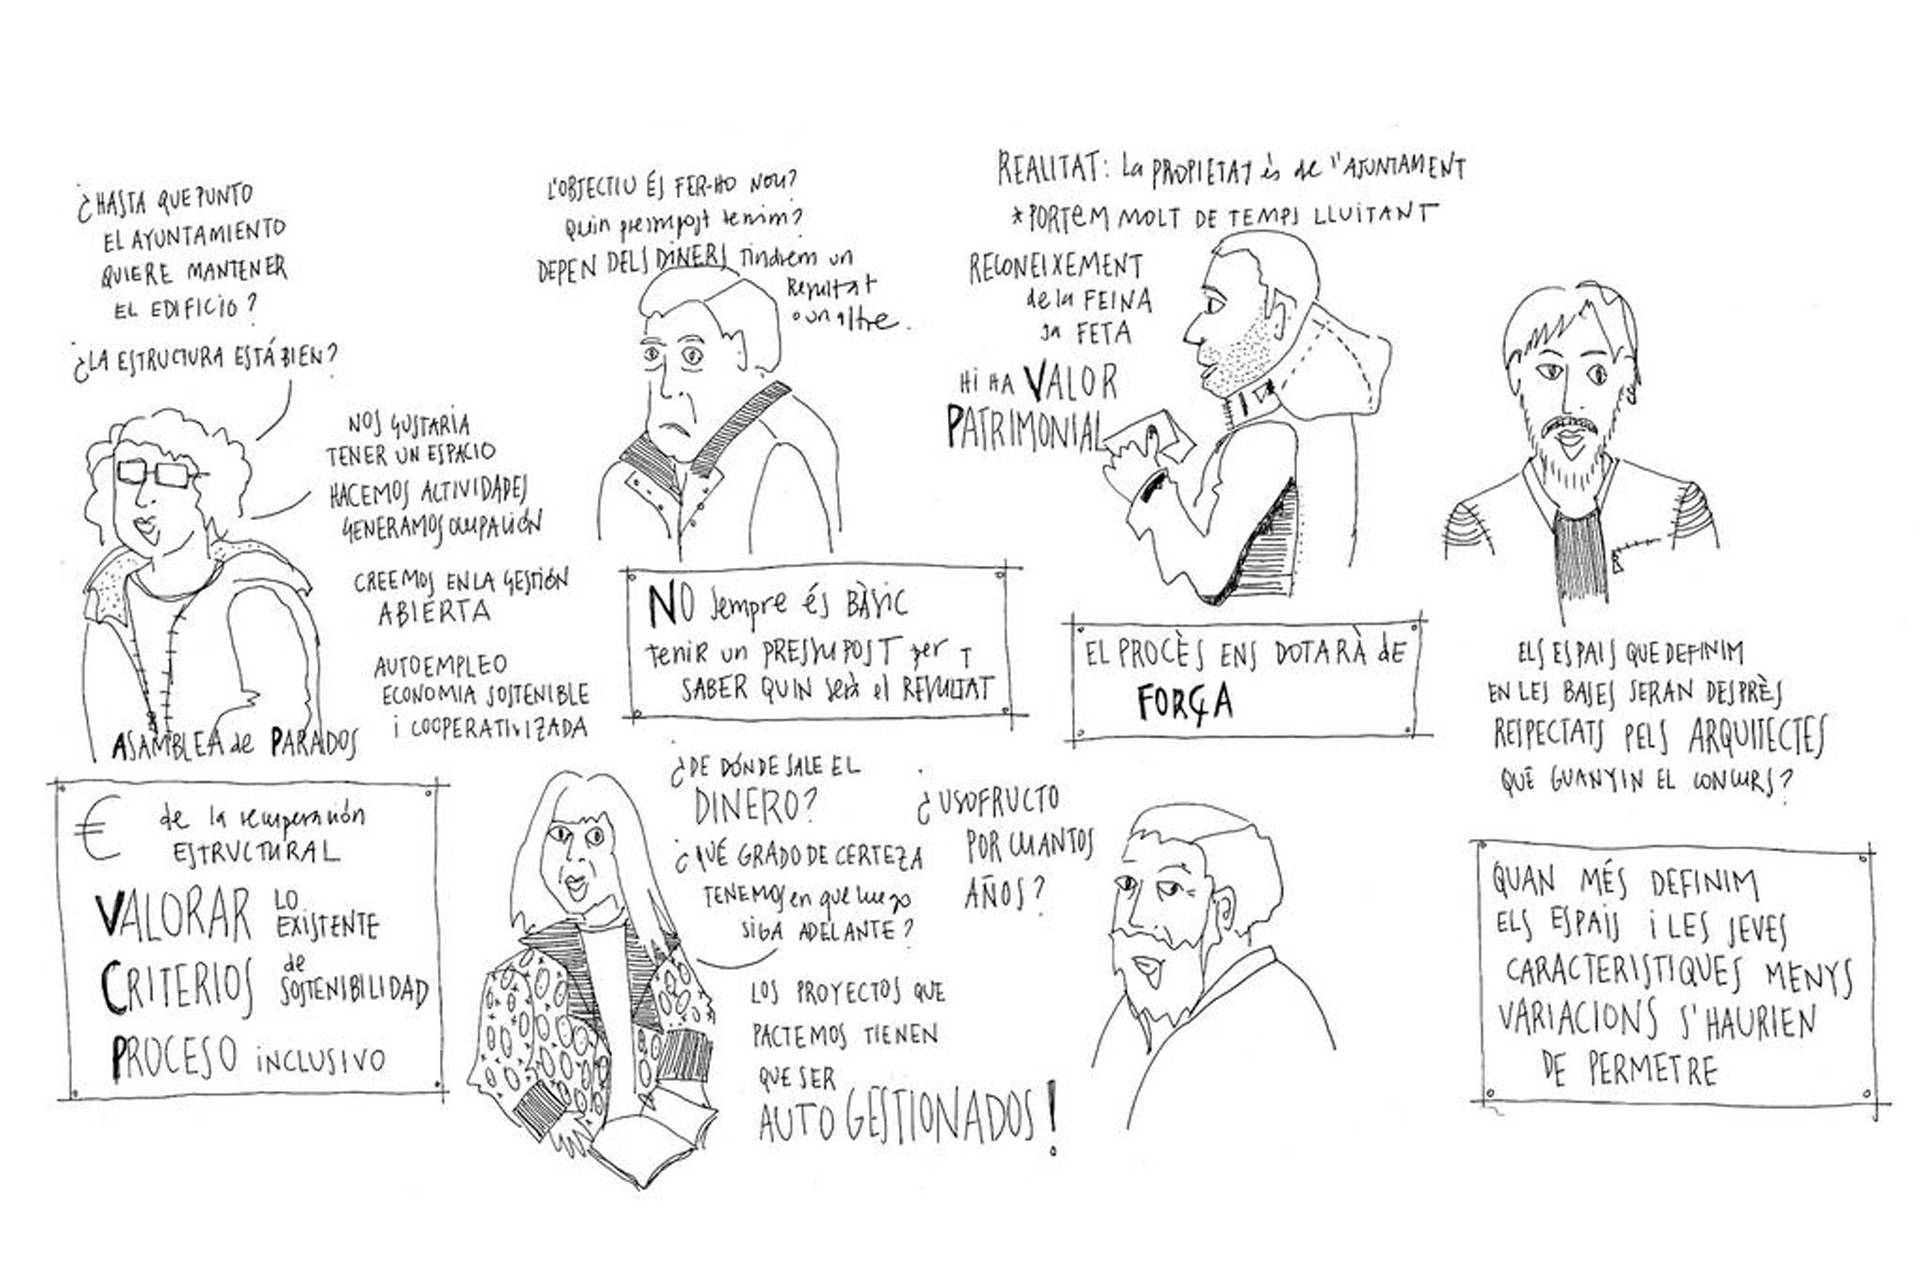 ¿HASTA QUE PUNTO
EL AYUNTAMIENTO
QUIERE MANTENER
EL EDIFICIO?
¿LA ESTRUCTURA ESTÁ BIEN?
NOS GUSTARIA
TENER UN ESPACIO
HACEMOS ACTIVIDADES
GENERAMOS OCUPACIÓN
CREEMOS EN LA GESTIÓN
ABIERTA
AUTOEMPLEO
ECONOMIA SOSTENIBLE
i COOPERATIVIZADA
ASAMBLEA de PARADOS
€ de la recuperación
ESTRUCTURAL
VALORAR LO EXISTENTE
CRITERIOS de SOSTENIBILIDAD
PROCESO INCLUSIVO
L'OBJECTIU ÉS FER-HO NOU?
Quin pressupost tenim?
DEPEN DELS DINERS Tindrem un
Resultat
o un altre.
NO sempre és BÀSIC
tenir un PRESSUPOST per
SABER QUIN serà el RESULTAT
REALITAT: La PROPIETAT és de l'AJUNTAMENT
*PORTEM MOLT DE TEMPS LLUITANT
RECONEIXEMENT
de la FEINA
JA FETA
Hi HA VALOR
PATRIMONIAL
EL PROCÈS ENS DOTARÀ dE
FORÇA
ELS ESPAIS QUE DEFINIM
EN LES BASES SERAN DESPRÈS
RESPECTATS PELS ARQUITECTES
QUE GUANYIN EL CONCURS?
QUAN MÉS DEFINIM
ELS ESPAIS i LES SEVES
CARACTERISTIQUES MENYS
VARIACIONS S'HAURIEN
DE PERMETRE
¿DE DÓNDE SALE EL
DINERO?
¿QUÉ GRADO DE CERTEZA
TENEMOS en que luego
SIGA ADELANTE?
LOS PROYECTOS QUE
PACTEMOS TIENEN
QUE SER
AUTO GESTIONADOS!
¿USOFRUCTO
POR CUANTOS
AÑOS?